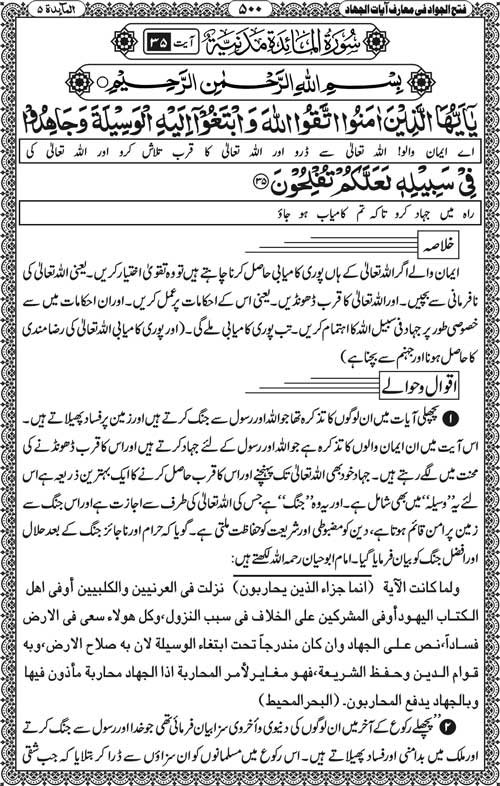 فتح الجواد فی معارف آیات الجهاد ۵۰۰ المآئدة ۵
سُوْرَةُ الْمَآئِدَةِ مَدَنِيَّةٌ آیت ۳۵
بِسْمِ اللهِ الرَّحْمٰنِ الرَّحِيْمِ
يٰۤاَيُّهَا الَّذِيْنَ اٰمَنُوا اتَّقُوا اللهَ وَابْتَغُوْۤا اِلَيْهِ الْوَسِيْلَةَ وَجَاهِدُوْا
اے ایمان والو! اللہ تعالیٰ سے ڈرو اور اللہ تعالیٰ کا قرب تلاش کرو اور اللہ تعالیٰ کی
فِيْ سَبِيْلِهٖ لَعَلَّكُمْ تُفْلِحُوْنَ ۳۵
راہ میں جہاد کرو تاکہ تم کامیاب ہو جاؤ
خلاصہ
ایمان والے اگر اللہ تعالیٰ کے ہاں پوری کامیابی حاصل کرنا چاہتے ہیں تو وہ تقویٰ اختیار کریں۔ یعنی اللہ تعالیٰ کی
نافرمانی سے بچیں۔ اور اللہ تعالیٰ کا قرب ڈھونڈیں۔ یعنی اس کے احکامات پر عمل کریں۔ اور ان احکامات میں سے
خصوصی طور پر جہاد فی سبیل اللہ کا اہتمام کریں۔ تب پوری کامیابی ملے گی۔ (اور پوری کامیابی اللہ تعالیٰ کی رضامندی
کا حاصل ہونا اور جہنم سے بچنا ہے)
اقوال و حوالے
۱ پچھلی آیات میں ان لوگوں کا تذکرہ تھا جو اللہ اور رسول سے جنگ کرتے ہیں اور زمین پر فساد پھیلاتے ہیں۔
اس آیت میں ان ایمان والوں کا تذکرہ ہے جو اللہ اور رسول کے لئے جہاد کرتے ہیں اور اس کا قرب ڈھونڈنے کی
محنت میں لگے رہتے ہیں۔ جہاد خود بھی اللہ تعالیٰ تک پہنچنے اور اس کا قرب حاصل کرنے کا ایک بہترین ذریعہ ہے اس
لئے یہ ”وسیلہ“ میں بھی شامل ہے۔ اور یہ وہ ”جنگ“ ہے جس کی اللہ تعالیٰ کی طرف سے اجازت ہے اور اس جنگ سے
زمین پر امن قائم ہوتا ہے، دین کو مضبوطی اور شریعت کو حفاظت ملتی ہے۔ گویا کہ حرام اور ناجائز جنگ کے بعد حلال
اور افضل جنگ کو بیان فرمایا گیا۔ امام ابو حیان رحمہ اللہ لکھتے ہیں:
ولما کانت الآیة (انما جزاء الذین یحاربون) نزلت فی العرنیین والکلبیین أوفی اهل
الکتاب الیهود أوفی المشرکین علی الخلاف فی سبب النزول، وکل هولاء سعی فی الارض
فساداً، نص علی الجهاد وان کان مندرجاً تحت ابتغاء الوسیلة لان به صلاح الارض، وبه
قوام الدین وحفظ الشریعة، فهو مغایر لأمر المحاربة اذا الجهاد محاربة مأذون فیها
وبالجهاد یدفع المحاربون۔ (البحر المحیط)
۲ ”پچھلے رکوع کے آخر میں ان لوگوں کی دنیوی و اخروی سزا بیان فرمائی تھی جو خدا اور رسول سے جنگ کرتے
اور ملک میں بدامنی اور فساد پھیلاتے ہیں۔ اس رکوع میں مسلمانوں کو ان سزاؤں سے ڈرا کر بتلایا کہ جب شقی